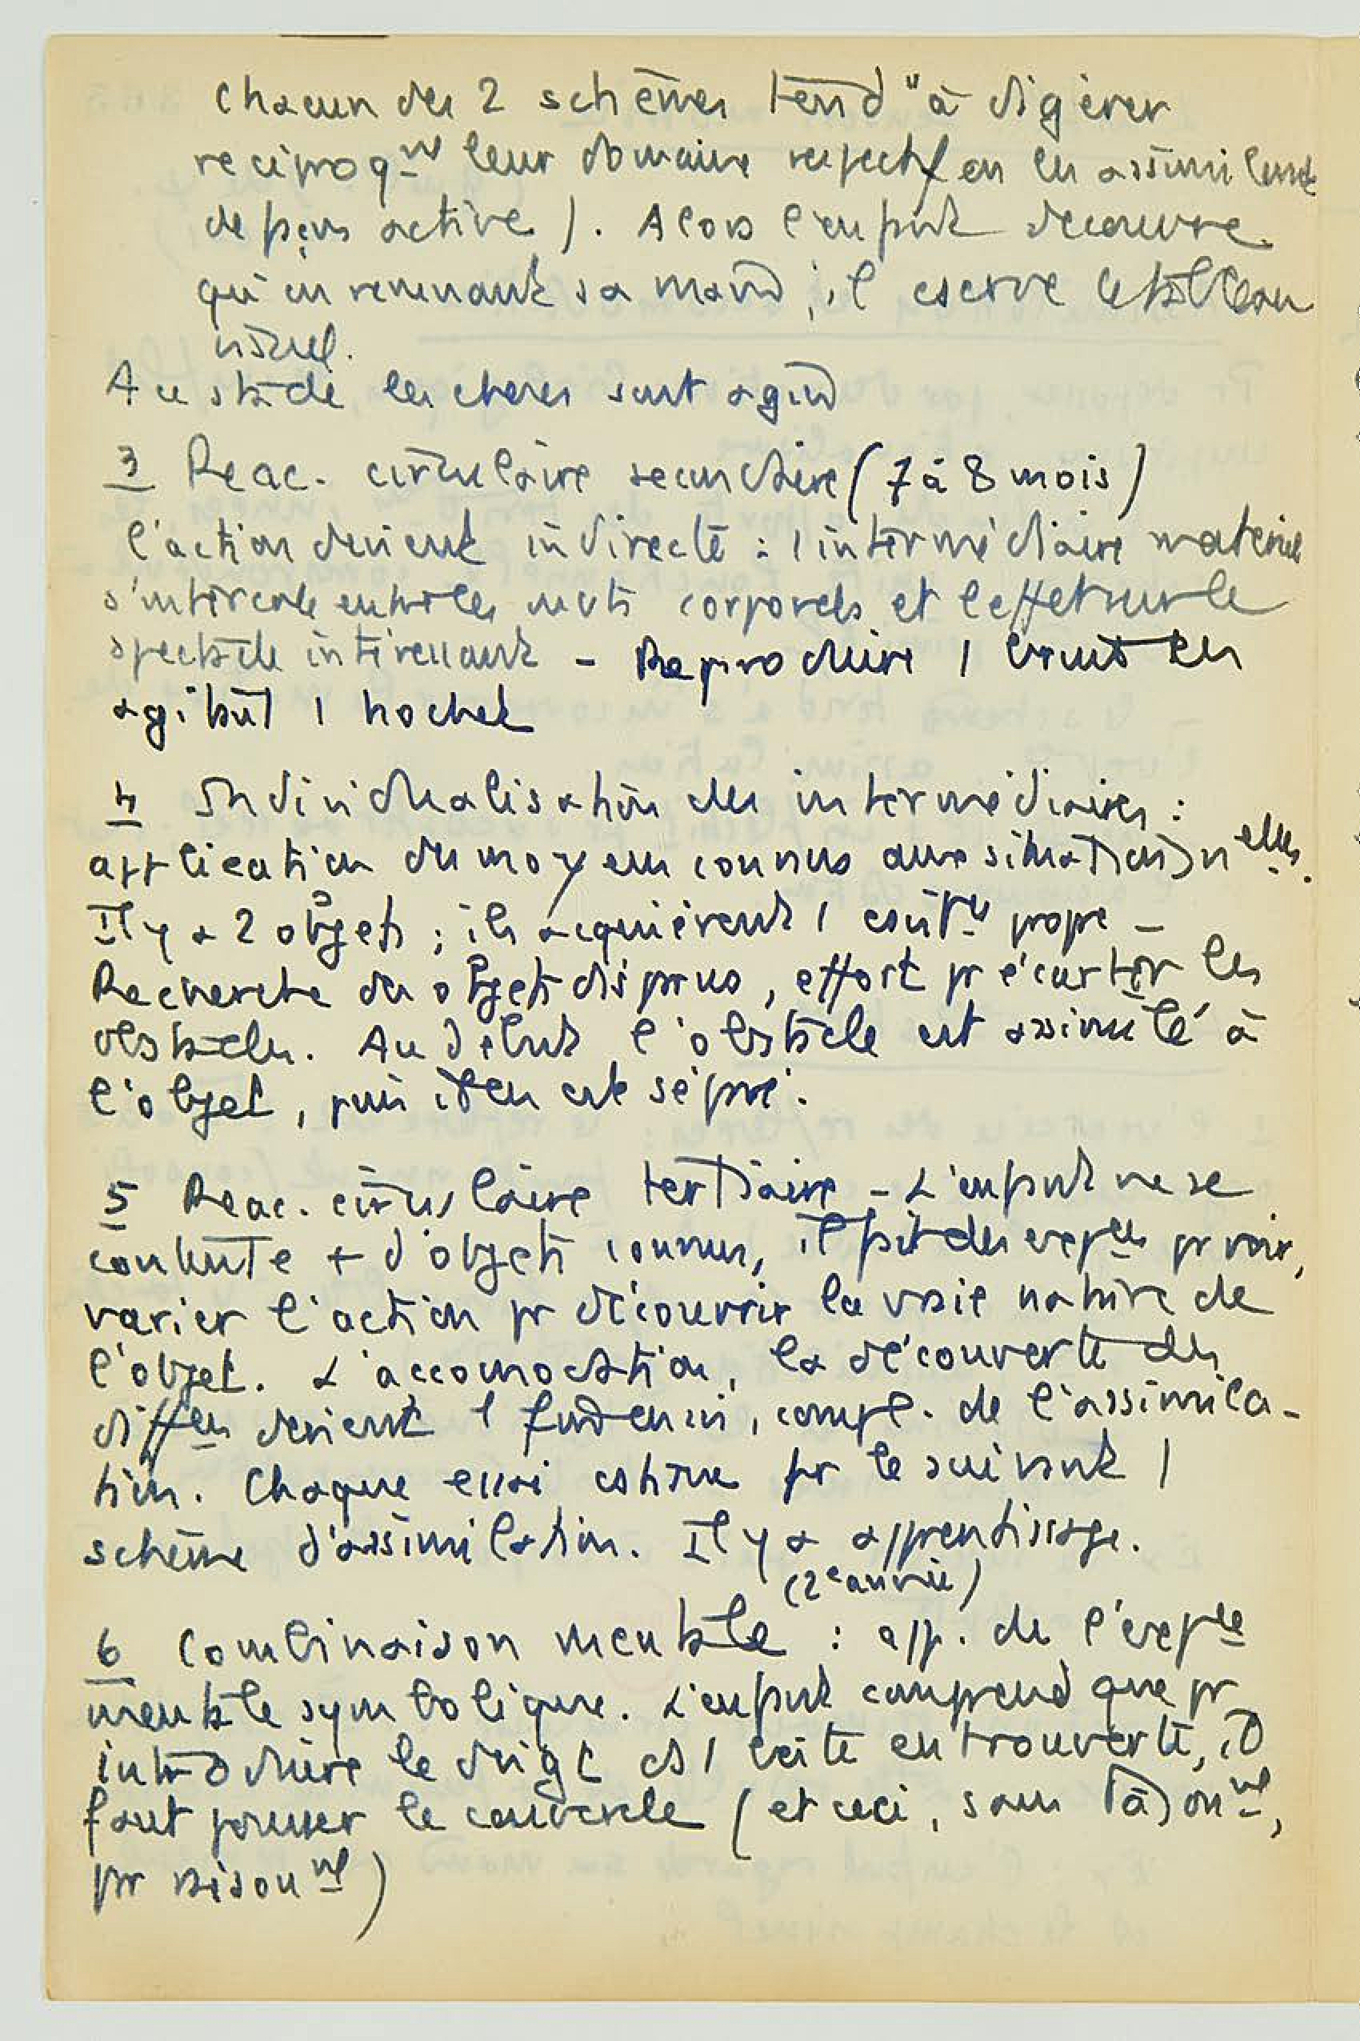 Chacun des 2 schèmes tend "à digérer
reciproqnt leur domaine respectif en les assimilant
de façon active). Alors l'enfant découvre
qu'en remuant sa main, il conserve le tableau
visuel.
A ce stade les choses sont agies
3 Reac. circulaire secondaire (7 à 8 mois)
l'action devient indirecte : 1 intermédiaire matériel
s'intercale entre les mvts corporels et l'effet sur le
spectacle intéressant - Reproduire 1 bruit en
agitant 1 hochet
4 Individualisation des intermédiaires :
application de moyens connus aux situations nelles.
Il y a 2 objets ; ils acquièrent 1 propre -
Recherche des objets disparus, effort pr écarter les
obstacles. Au début l'obstacle est assimilé à
l'objet, puis il en est séparé.
5 Reac. circulaire tertiaire - L'enfant ne se
contente + d'objets connus, il fait des expces pr voir,
varier l'action pr découvrir la vraie nature de
l'objet. L'accomodation, la découverte des
diffces devient 1 compl. de l'assimila-
tion. Chaque essai constitue pr le suivant 1
schème d'assimilation. Il y a apprentissage.
(2e année)
6 Combinaison mentale : app. de l'expce
mentale symbolique. L'enfant comprend que pr
introduire le doigt ds 1 boîte entrouverte, il
faut pousser le couvercle (et ceci, sans tâtonnt,
pr raisonnt)